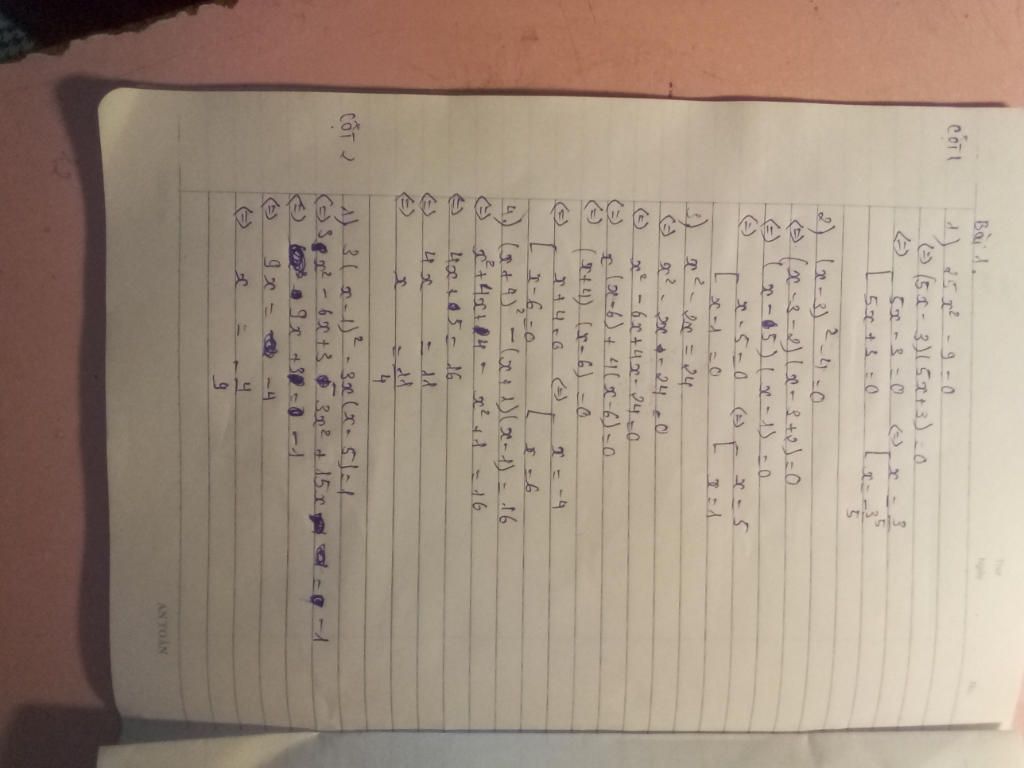 Bài 1.
CỘT 1
1) 25x² - 9 = 0
(=) (5x - 3)(5x + 3) = 0
(=) [ 5x - 3 = 0 (=) [ x = 3/5
5x + 3 = 0 x = -3/5
2) (x - 3)² - 4 = 0
(=) (x - 3 - 2)(x - 3 + 2) = 0
(=) (x - 5)(x - 1) = 0
(=) [ x - 5 = 0 (=) [ x = 5
x - 1 = 0 x = 1
3) x² - 2x = 24
(=) x² - 2x - 24 = 0
(=) x² - 6x + 4x - 24 = 0
(=) x(x - 6) + 4(x - 6) = 0
(=) (x + 4)(x - 6) = 0
(=) [ x + 4 = 0 (=) [ x = -4
x - 6 = 0 x = 6
4) (x + 4)² - (x + 1)(x - 1) = 16
(=) x² + 4x + 4 - x² + 1 = 16
(=) 4x + 5 = 16
(=) 4x = 11
(=) x = 11/4
CỘT 2
1) 3(x - 1)² - 3x(x - 5) = 1
(=) 3x² - 6x + 3 - 3x² + 15x = - 1
(=) 9x + 3 = - 1
(=) 9x = -4
(=) x = -4/9
AN TOÀN